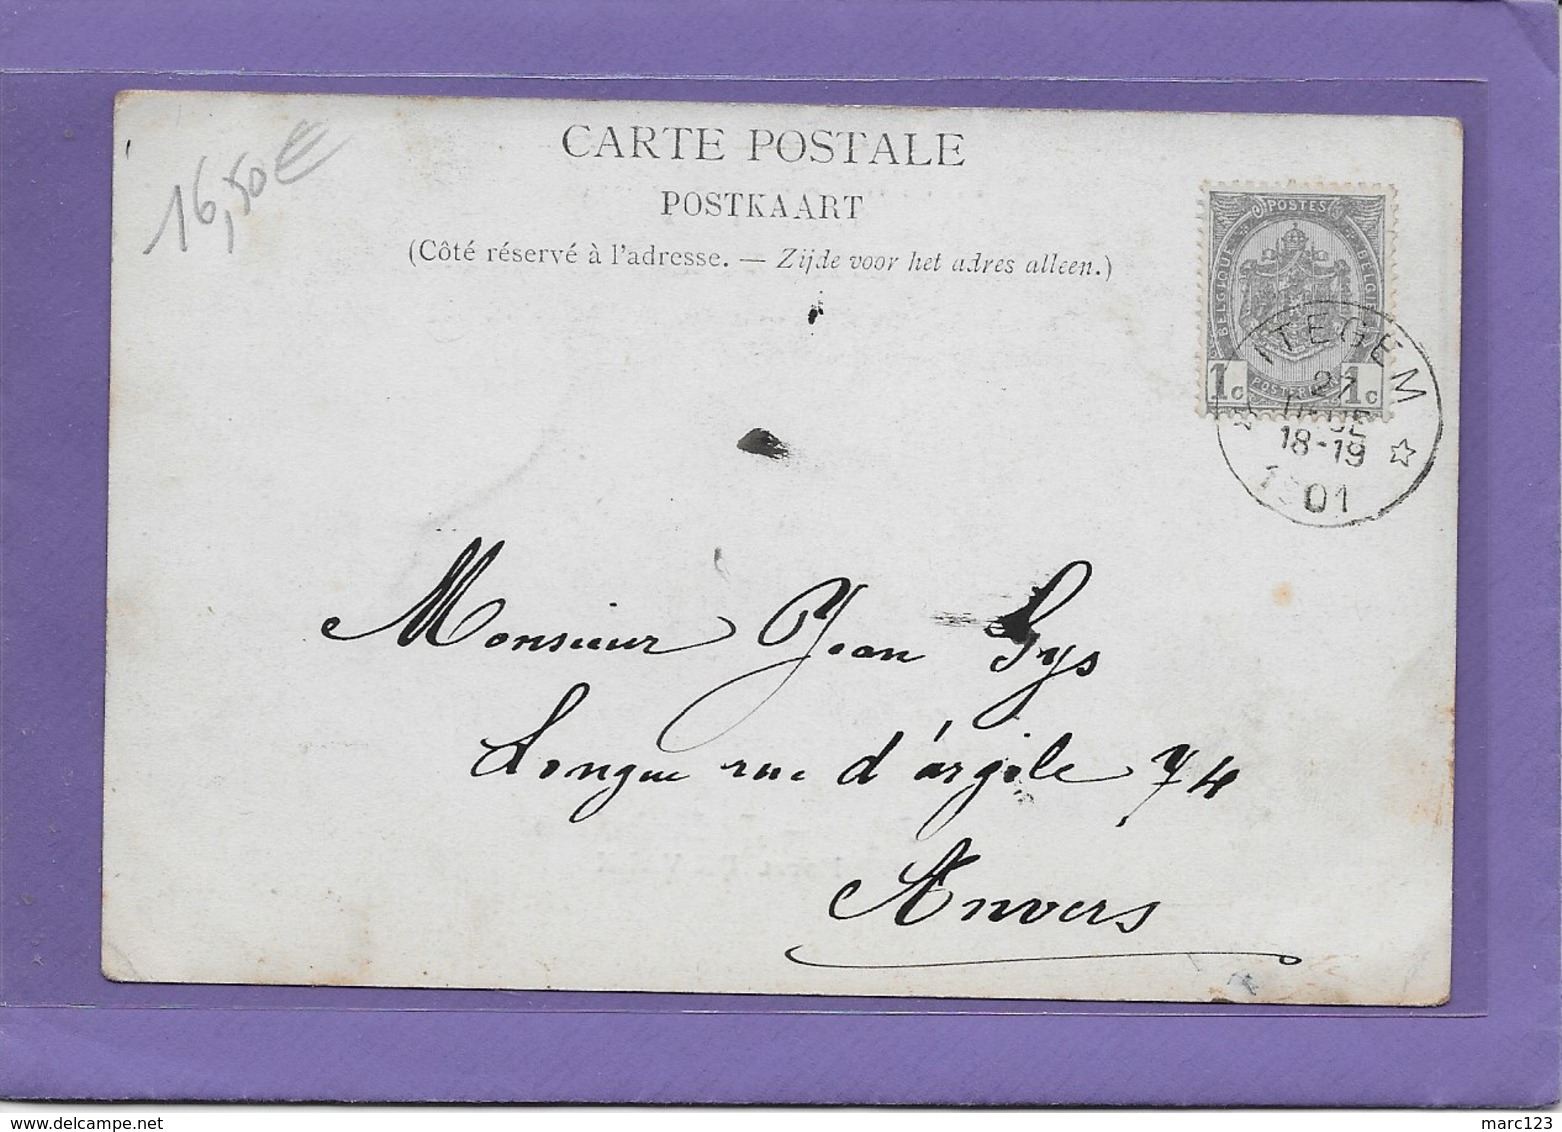 16,50€
CARTE POSTALE
POSTKAART
(Côté réservé à l'adresse. — Zijde voor het adres alleen.)
POSTES
BELGIQUE
BELGIË
1c 1c
ITEGEM
27
18-19
1901
Monsieur Jean Gys
Longue rue d'argile 74
Anvers
delcampe.net
marc123